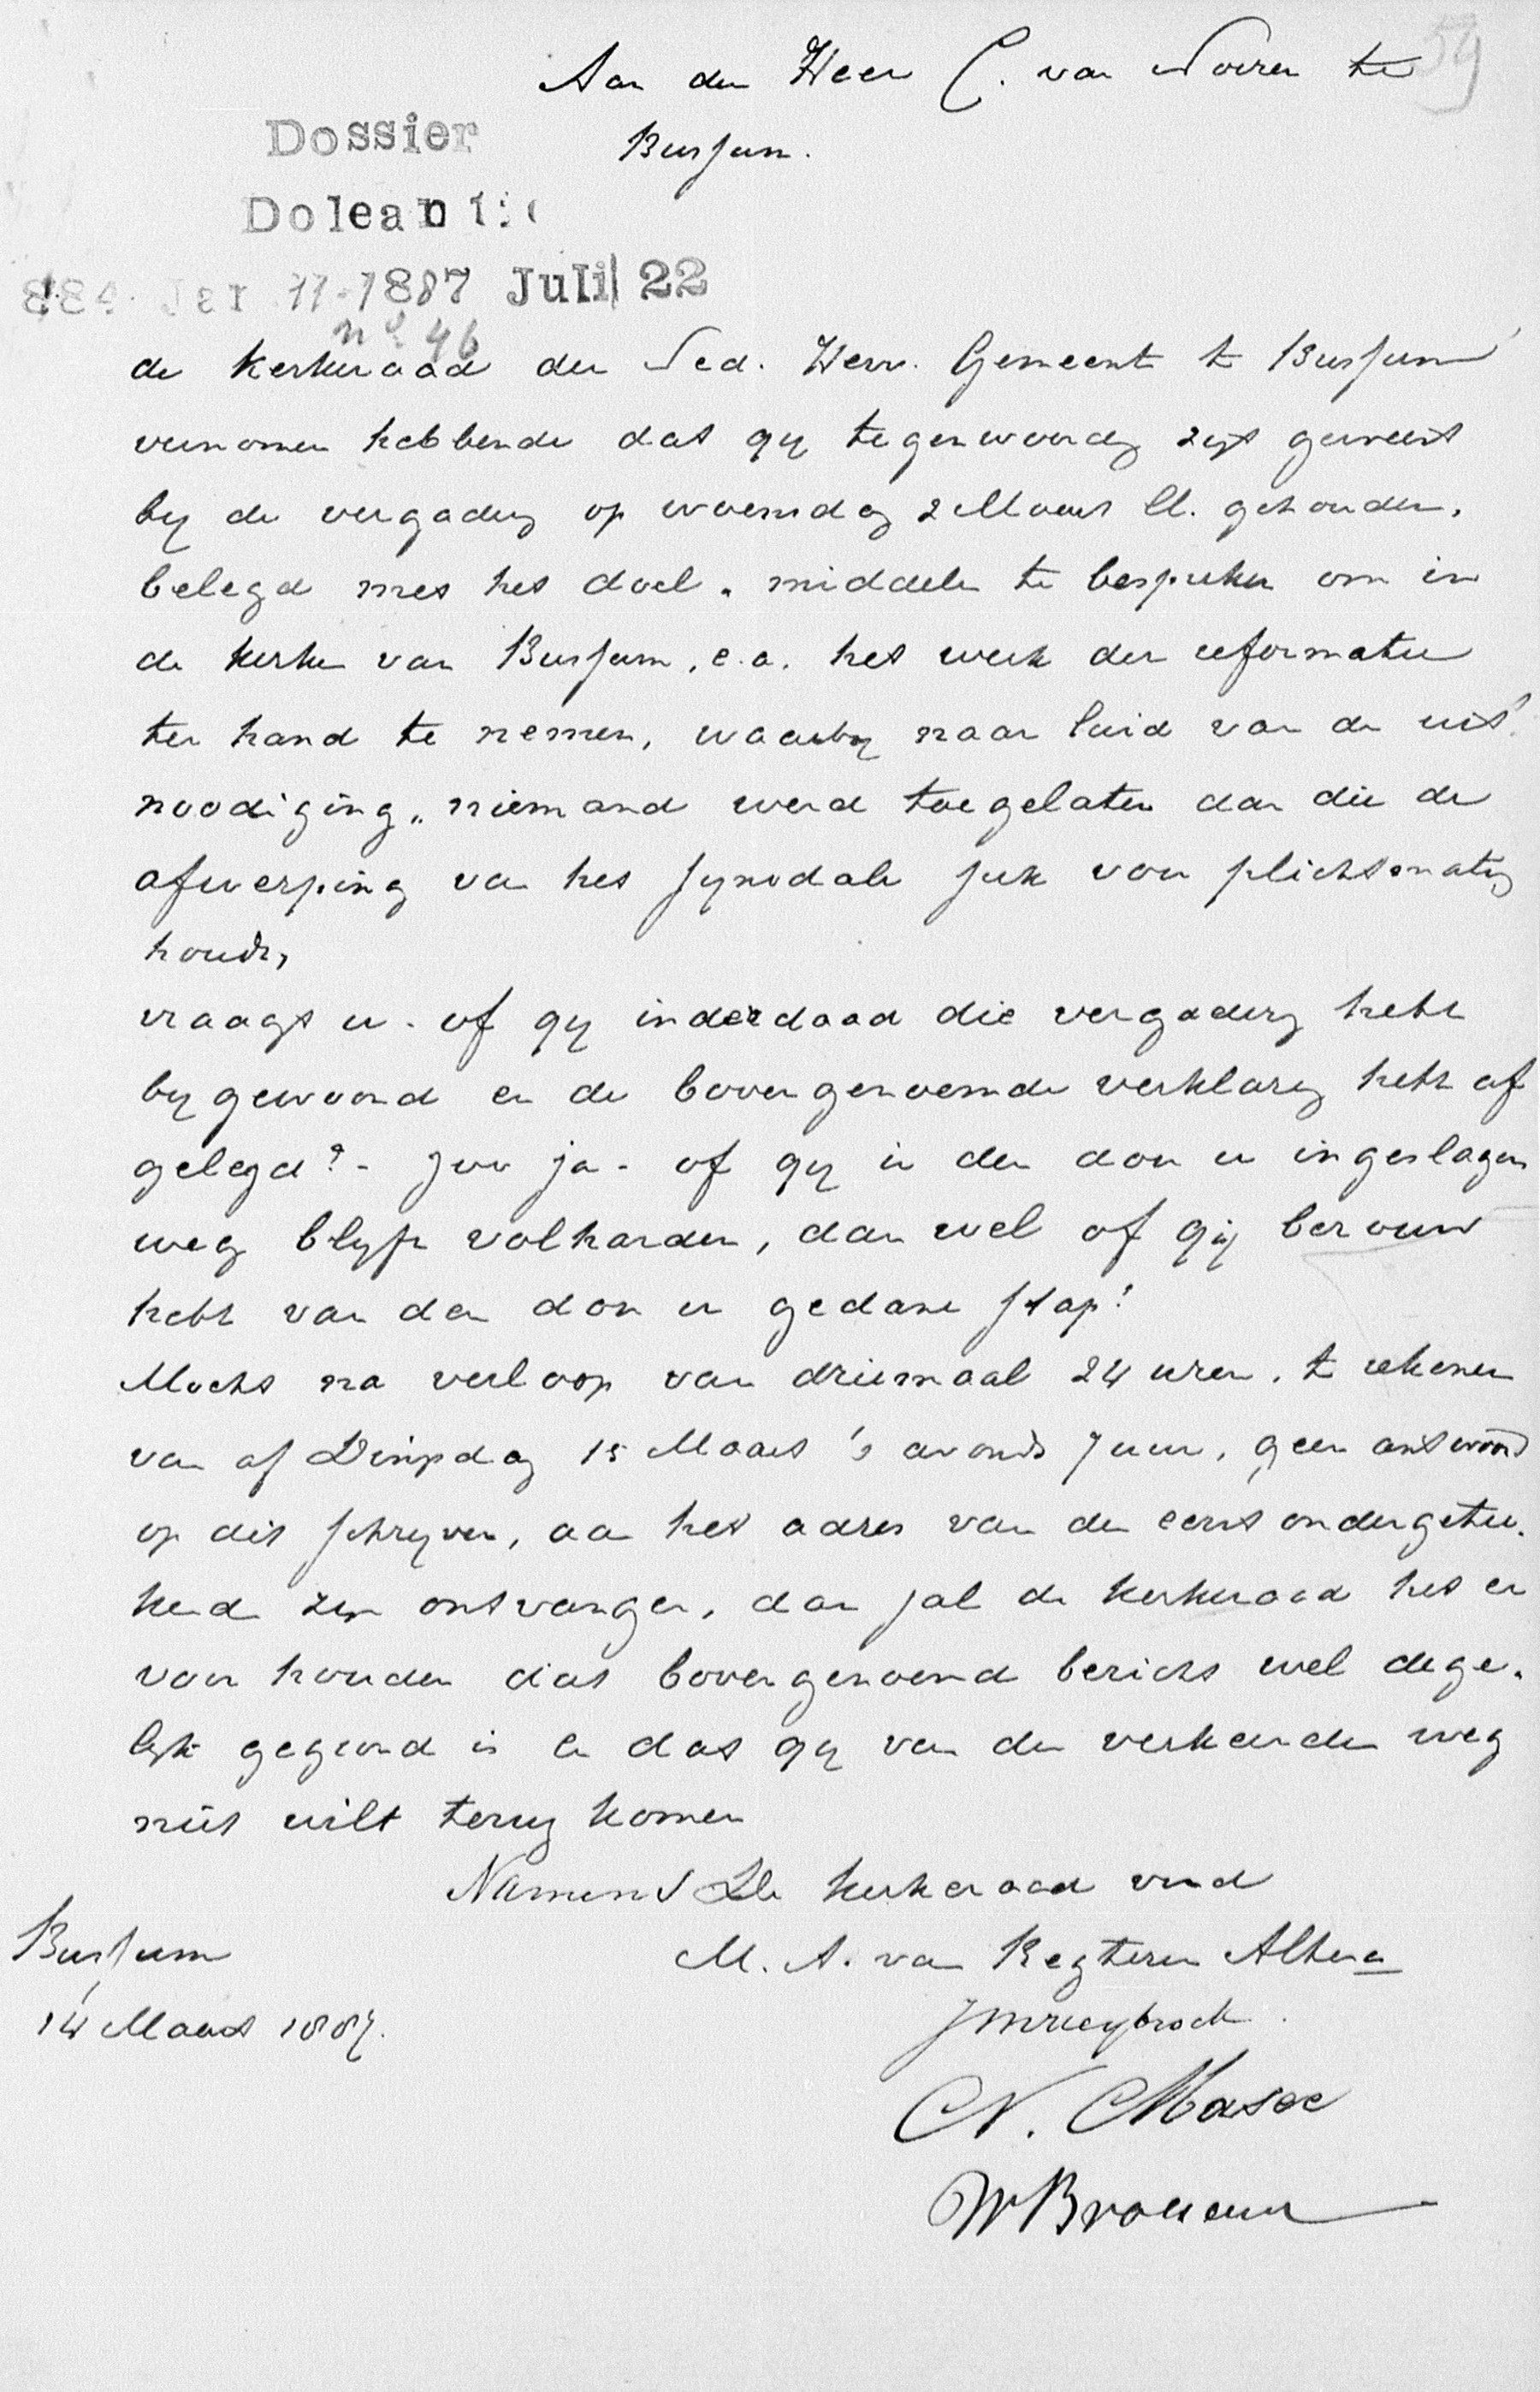 59
Aan den Heer C. van Noeren te
Bussum.
Dossier
Doleantie
1884 Jar 11-1887 Juli 22
no 46
de Kerkeraad der Ned. Herv. Gemeente te Bussum
vernomen hebbende dat gij tegenwoordig zijt geweest
bij de vergadering op woensdag 2 Maart ll. gehouden,
belegd met het doel „middelen te bespreken om in
de kerken van Bussum, e.a. het werk der reformatie
ter hand te nemen, waarbij naar luid van de uit-
noodiging „niemand werd toegelaten dan die de
afwerping van het synodale juk voor plichtmatig
houdt,
vraagt u - of gij inderdaad die vergadering hebt
bijgewoond en de bovengenoemde verklaring hebt af
gelegd? - Zoo ja - of gij in den door u ingeslagen
weg blijft volharden, dan wel of gij berouw
hebt van den door u gedane stap?
Mocht na verloop van driemaal 24 uren, te rekenen
van af Dinsdag 15 Maart 's avonds 7 uur, geen antwoord
op dit schrijven, aan het adres van den eerst ondergetee-
kende zijn ontvangen, dan zal de Kerkeraad het er
voor houden dat bovengenoemd bericht wel dege-
lijk gegrond is en dat gij van den verkeerden weg
niet wilt terug komen
Namens De Kerkeraad vnd
Bussum
M. A. van Regteren Altena
14 Maart 1887.
N. Masee
W Brouwer